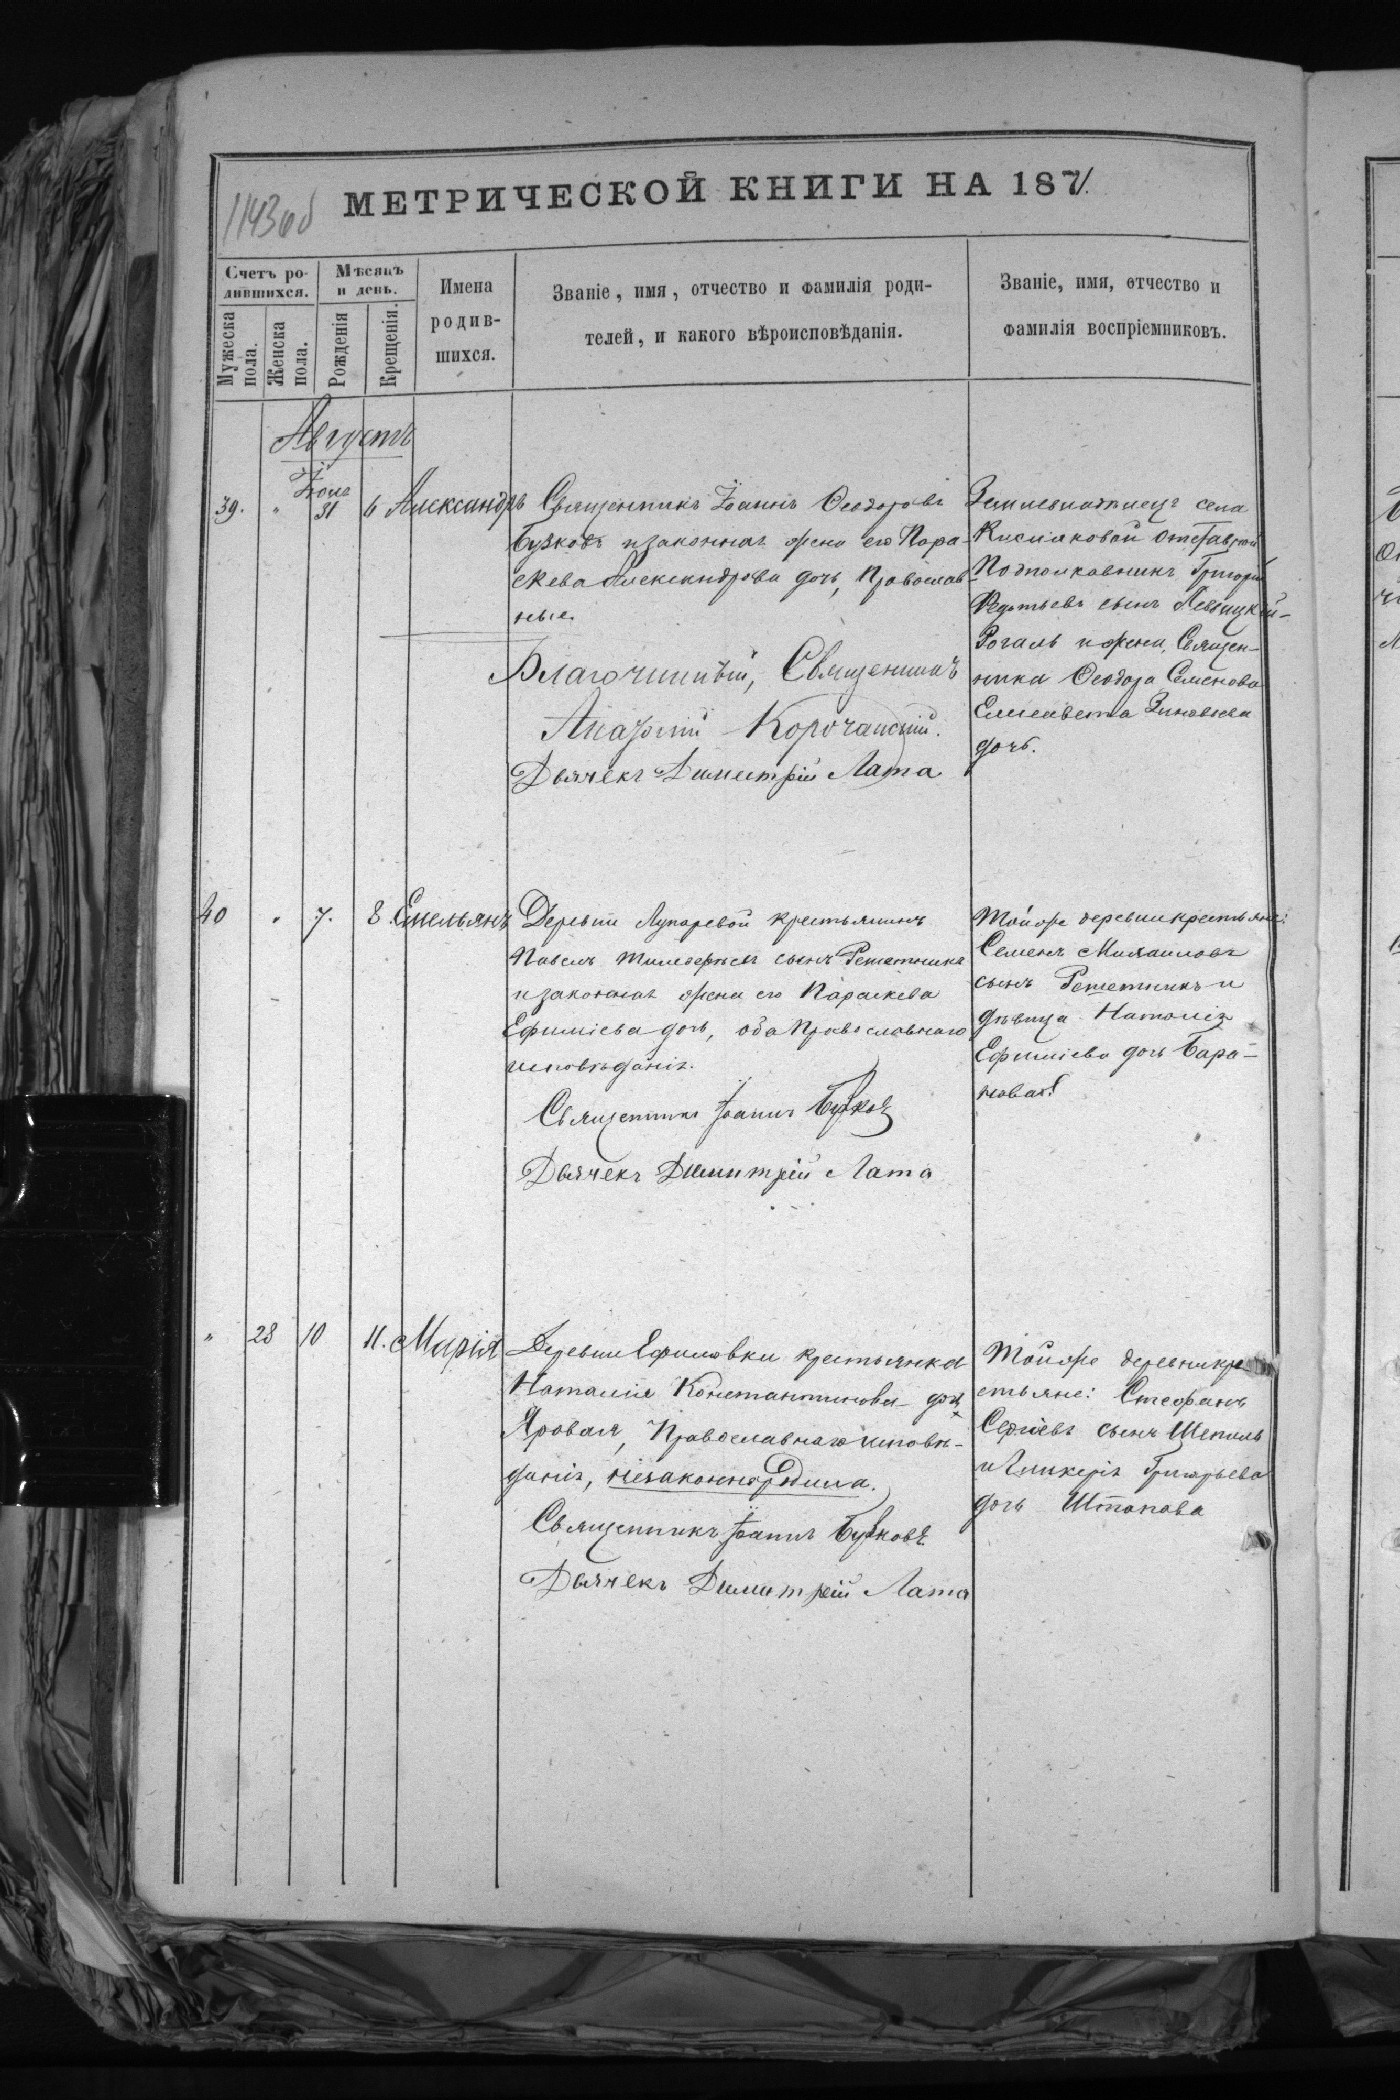 1143 об
МЕТРИЧЕСКОЙ КНИГИ НА 1871.
Счетъ ро-
дившихся.
Мѣсяцъ
и день.
Мужеска
пола.
Женска
пола.
Рожденія
Крещенія.
Имена
родив-
шихся.
Званіе, имя, отчество и фамилія роди-
телей, и какого вѣроисповѣданія.
Званіе, имя, отчество и
фамилія воспріемниковъ.
Августъ
39. " 31 6 Александръ
Священникъ Іоаннъ Ѳеодоровъ
Бужковъ и законная жена его Пара-
скева Александрова дочь, Православ-
ные.
Благочинный, Священникъ
Корочанскій.
Дьячекъ Димитрій Лата
села
Кисляковой отставной
Подполковникъ Григорій
сынъ
Рогаль и жена Священ-
ника Ѳеодора Семенова
Елисавета Зиновьева
дочь.
40 " 7. 8. Емельянъ
Деревни Лупаревой крестьянинъ
Павелъ сынъ Решетника
и законная жена его Параскева
Ефиміева дочь, оба Православнаго
исповѣданія.
Священникъ Іоаннъ Бужковъ
Дьячекъ Димитрій Лата
Тойже деревни крестьяне:
Семенъ Михаиловъ
сынъ Решетникъ и
дѣвица Наталія
Ефиміева дочь Бара-
новая.
" 28 10 11. Марія
Деревни Ефимовки крестьянка
Наталія Константинова дочь
Яровая, Православнаго исповѣ-
данія, незаконнорожденна.
Священникъ Іоаннъ Бужковъ
Дьячекъ Димитрій Лата
Тойже деревни кре-
стьяне: Стефанъ
Сергіевъ сынъ Шепиль
и Гликерія Григорьева
дочь Штопова